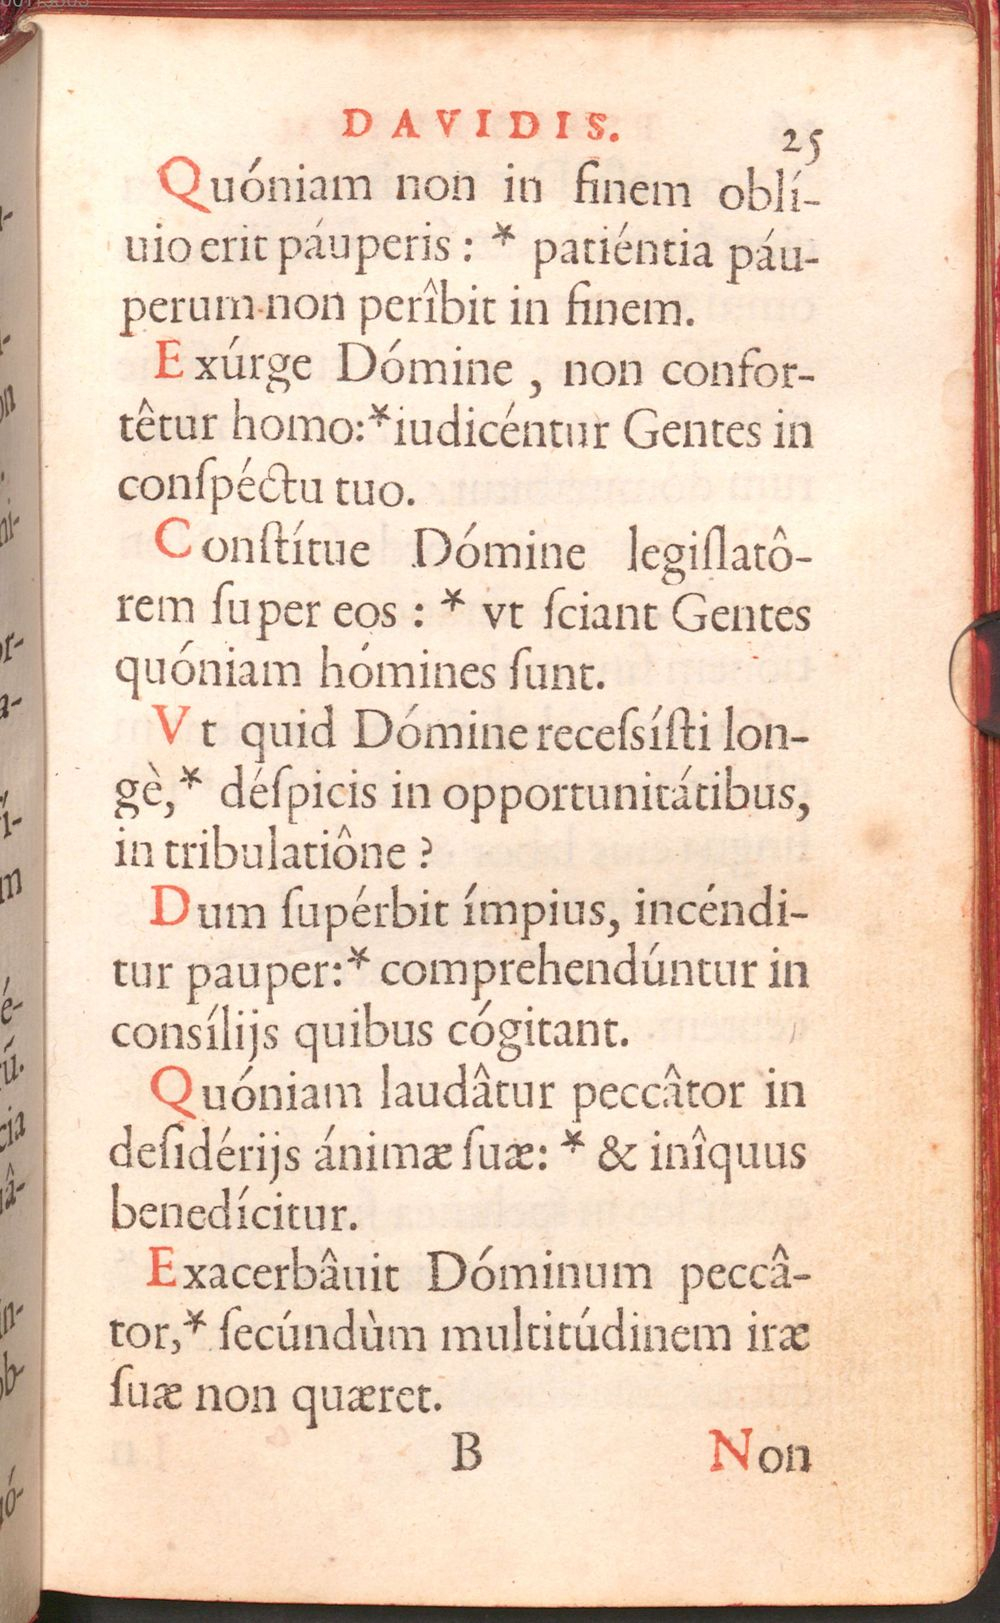 DAVIDIS. 25
Quóniam non in finem oblí-
uio erit páuperis : * patiéntia páu-
perum non perîbit in finem.
Exúrge Dómine , non confor-
têtur homo:* iudicéntur Gentes in
conſpéctu tuo.
Conſtítue Dómine legiſlatô-
rem ſuper eos : * vt ſciant Gentes
quóniam hómines ſunt.
Vt quid Dómine receſsíſti lon-
gè,* déſpicis in opportunitátibus,
in tribulatiône ?
Dum ſupérbit ímpius, incéndi-
tur pauper:* comprehendúntur in
consílijs quibus cógitant.
Quóniam laudâtur peccâtor in
deſidérijs ánimæ ſuæ: * & inîquus
benedícitur.
Exacerbâuit Dóminum peccâ-
tor,* ſecúndùm multitúdinem iræ
ſuæ non quæret.
B Non